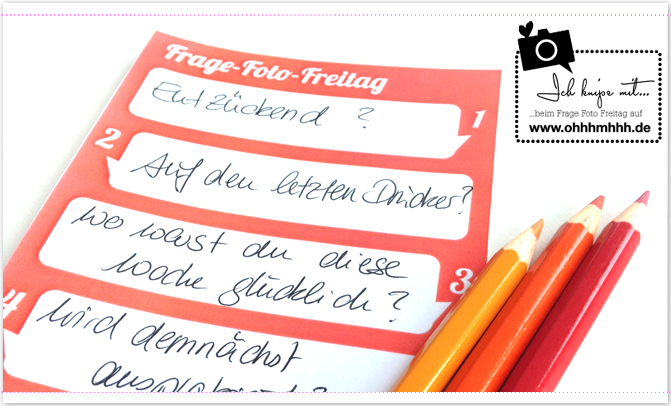 Frage-Foto-Freitag
Entzückend ?
1
2
Auf den letzten Drücker?
Wo warst du diese
Woche glücklich?
3
4
Wird demnächst
ausprobiert?
Ich knipse mit...
...beim Frage Foto Freitag auf
www.ohhhmhhh.de